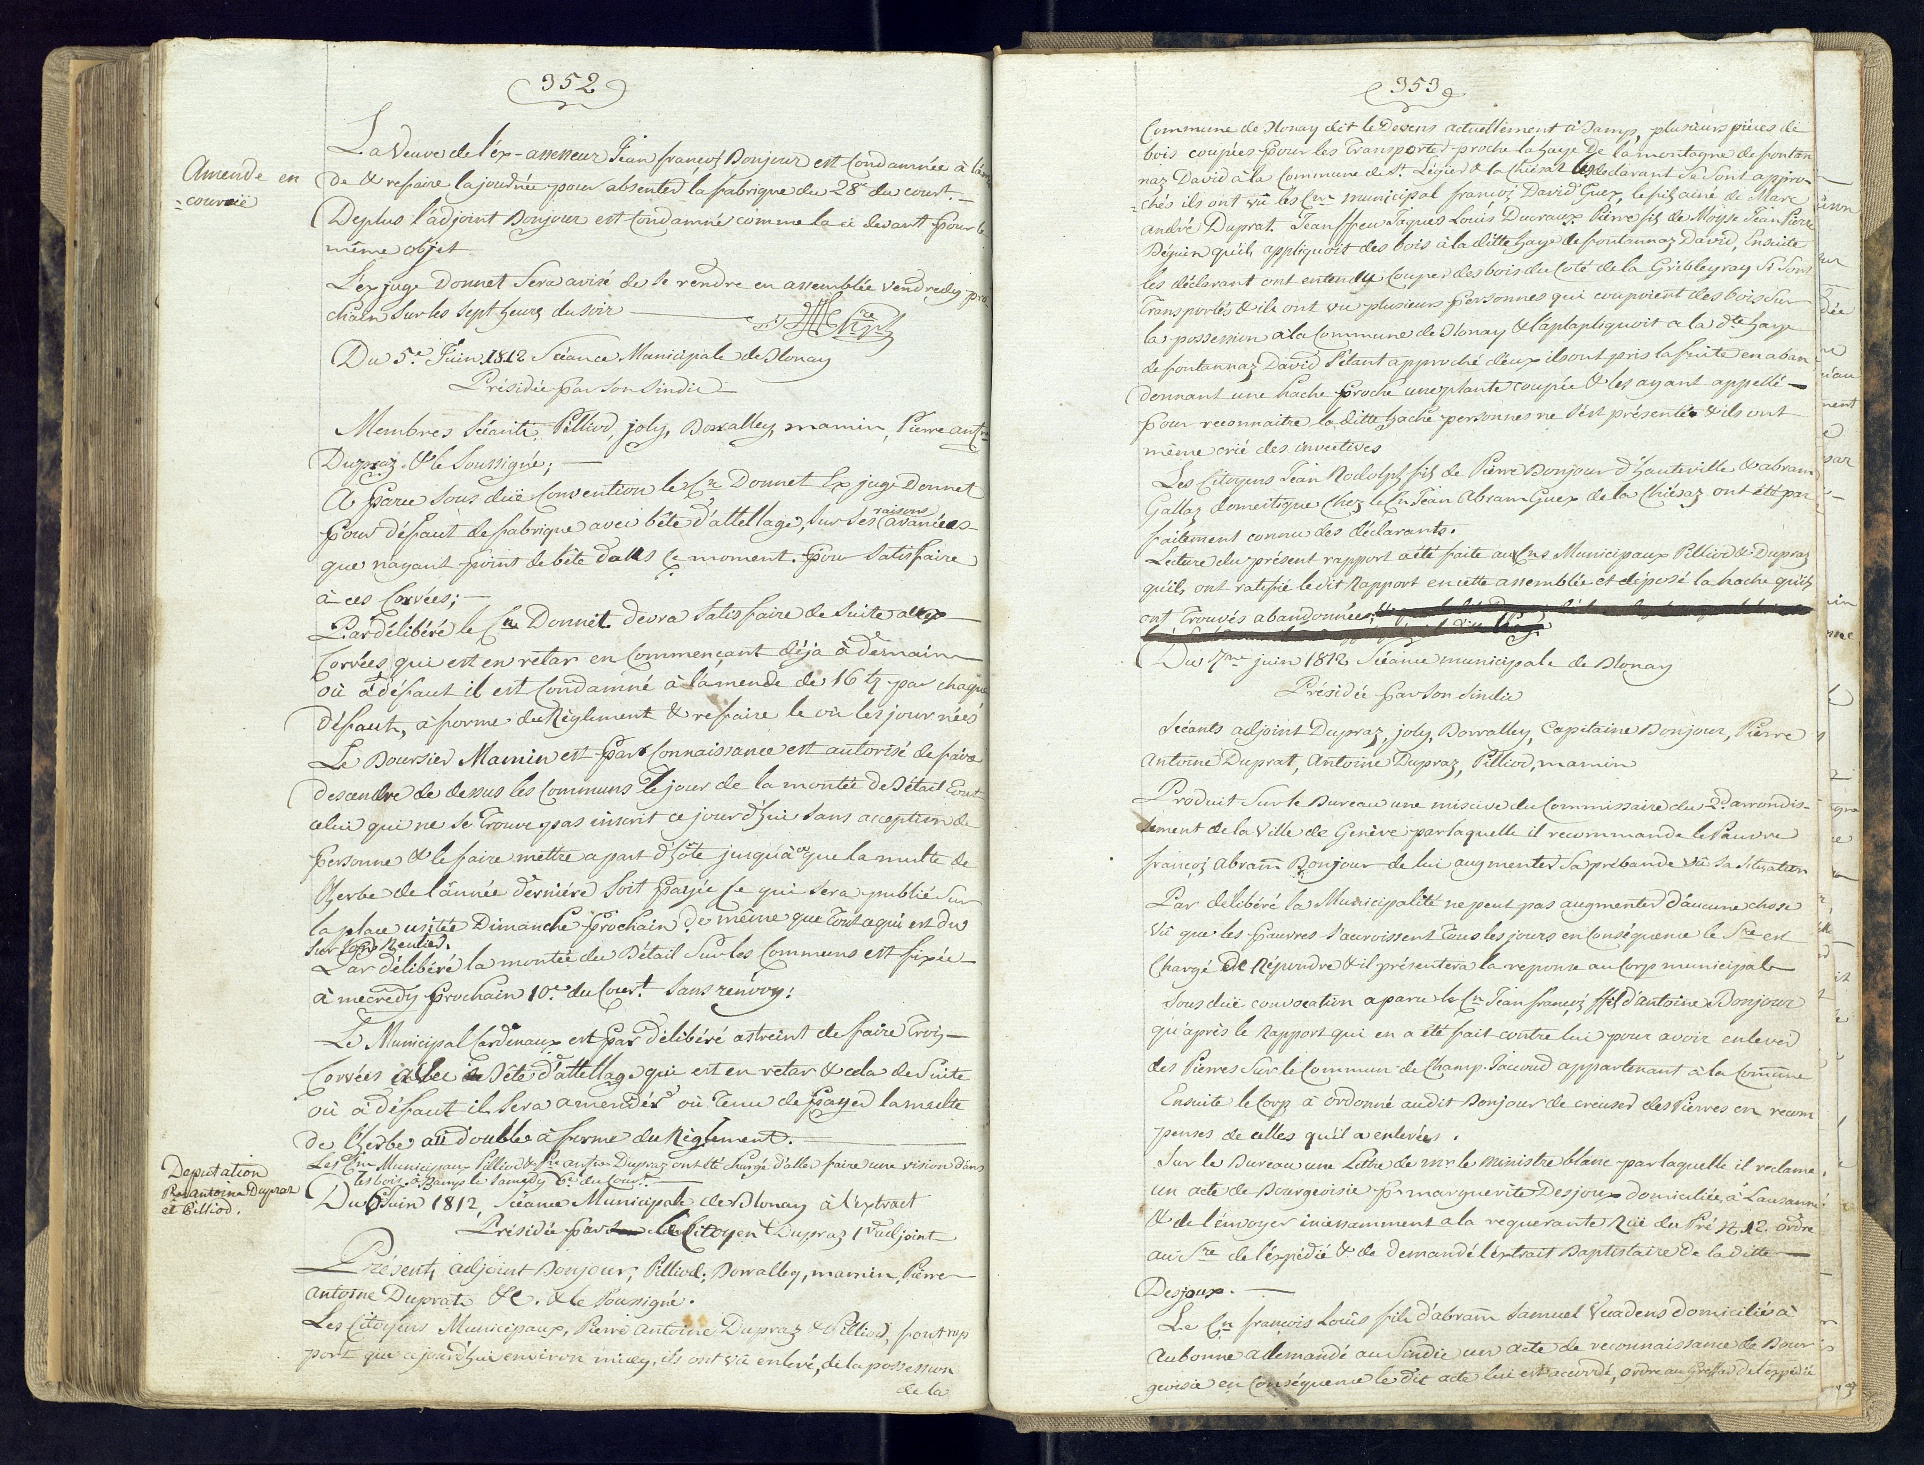 352
Amende en
couruie
La Veuve de l'éx-assesseur Jean françois Bonjour est Condamnée à l'âmen
de & refaire la journée pour absenter la fabrique du 28e du court. —
Deplus l'adjoint Bonjour est Condamné comme la ci devant pour le
même objet
L'éxjuge Donnet Sera avisé de se rendre en assemblée vendredy pro
chain sur les sept heures du soir —
Du 5e Juin 1812 Séeance Municipale de Blonay
Présidée par son Sindic —
Membres Séeants, Pilliod, joly, Borralley, mamin, Pierre antne
Dupraz & le Soussigné; —
A Parue sous düe Convention le Cn Donnet Ex juge Donnet
pour défaut de fabrique avec bête d'attellage, sur ses raisons avancées
que nayant point de bête dans ce moment pour satisfaire
à ces Corvées; —
Par délibéré le Cn Donnet devra Satisfaire de Suite aux
Corvées qui est en retar en Commençant déja à demain
où à défaut il est Condamné à l'amende de 16 ƒ par chaque
défaut, à forme du Règlement & refaire le où les journées
Le Boursier Mamin est par Connaissance est autorisé de faire
descendre de dessus les Communs le jour de la montée de Bétail Tout
celui qui ne se Trouve pas inscrit ce jourd'hui sans acception de
Personne & le faire mettre apart d'hôte jusqu'à ce que la multe de
l'herbe de l'ânnée derniére soit payée Ce qui sera publié Sur
la place usitée Dimanche prochain de même que Tout aqui est du
sur Rentier.
Par délibéré la montée du Bétail Sur les Communs est fixée
à mecredy prochain 10e du Court. Sans renvoy!
Le Municipal Cardenaux est par délibéré astreint de faire Trois
Corvées avec Bête d'attellage qui est en retar & cela de Suite
où à défaut il sera amendés où Tenu de payer la multe
de l'herbe au double à forme du Règlement. —
Les Cns Municipaux Pilliod & Pre antne Dupraz ont été chargé d'aller faire une vision dans
les bois à Jamps le Samedy 6e du Court. —
Deputation
Pre antoine Dupraz
et Pilliod.
Du 6 Juin 1812, Séeance Municipale de Blonay à l'extract
Présidée par le Citoyen Dupraz 1er adjoint
Présents, adjoint Bonjour, Pilliod, Borralley, mamin, Pierre
antoine Duprat & C. & le Soussigné.
Les Citoyens Municipaux, Pierre Antoine Dupraz & Pilliod, font rap
port que ajourd'hui environ midy, ils ont vû enlevé, de la possession
de la
353
Commune de Blonay dit le Devens actuellement à Jamp, plusieurs piéces de
bois coupées pour les Transporter proche la haye De la montagne de fontan
naz David à la Commune de St. Légier & la Chiésaz les déclarant se Sont appro
chés ils ont vû les Cns municipal françois David Guex, le fils ainé de Marc
andré Duprat. Jean ffeu Jaques Louis Ducraux Pierre fils de Moyse Jean Pierre
Béguin qu'ils appliquoit des bois à la ditte haye de fontannaz David, Ensuite
les déclarant ont entendu Couper des bois du Coté de la Gribleyray Si Sont
Transportés & ils ont vu plusieurs personnes qui coupoient des bois Sur
la possession à la Commune de Blonay & l'aplapliquoit a la dte haye
de fontannaz David S'étant approché d'eux ils ont pris la fuite en aban
donnant une hache proche une plante coupée & les ayant appellé —
pour reconnaitre la ditte hache personnes ne s'est présentée & ils ont
même crié des invectives
Les Citoyens Jean Rodolph fils de Pierre Bonjour d'hauteville & abram
Gallaz domestique Chez le Cn Jean Abram Guex de la Chiésaz ont été par
faitement connu des déclarants.
Lecture du présent rapport a été faite au Cns Municipaux Pilliod & Dupraz
qu'ils ont ratifié le dit Rapport en cette assemblée et déposé la hache qu'ils
ont Trouvés abandonnée.
Du 7me juin 1812 Séeance municipale de Blonay
Présidée par son Sindic
Séeants adjoint Dupraz, joly, Borralley, Capitaine Bonjour, Pierre
Antoine Duprat, Antoine Dupraz, Pilliod, mamin
Produit Sur le Bureau une misive du Commissaire du 2e arrondis-
sement de la Ville de Genêve par laquelle il recommande le Pauvre
françois Abram Bonjour de lui augmenter Sa prébande vû sa situation
Par délibéré la Municipalité ne peut pas augmenter d'aucune chose
Vû que les pauvres S'acroissent Tous les jours en Conséquence le Sre est
Chargé De Répondre & il présentera la reponse au Corp municipale
Sous düe convocation a paru le Cn Jean françois ffils d'antoine Bonjour
qu'aprés le Rapport qui en a été fait contre lui pour avoir enlever
des Pierres Sur le Commun de Champ-Jaccoud appartenant à la Comune
Ensuite le Corp à ordonné audit Bonjour de creuser des Pierres en recom
penses de celles qu'il a enlevées.
Sur le Bureau une Lettre de mr le ministre blanc par laquelle il reclame
un acte de Bourgeoisie pr marguerite Desjoux domiciliée à Lausanne
& de l'envoyer incessamment a la requerante Rüe du Pré N. 12. ordre
au Sre de l'éxpédié & de demandé l'extrait Baptistaire de la ditte —
Desjoux. —
Le Cn françois Louis fils d'abram Samuel Vuadens domiciliés à
Aubonne a demandé au Sindic un acte de reconnaissance de Bour
geoisie en Conséquence le dit acte lui est accordé, ordre au Greffier de l'éxpédié